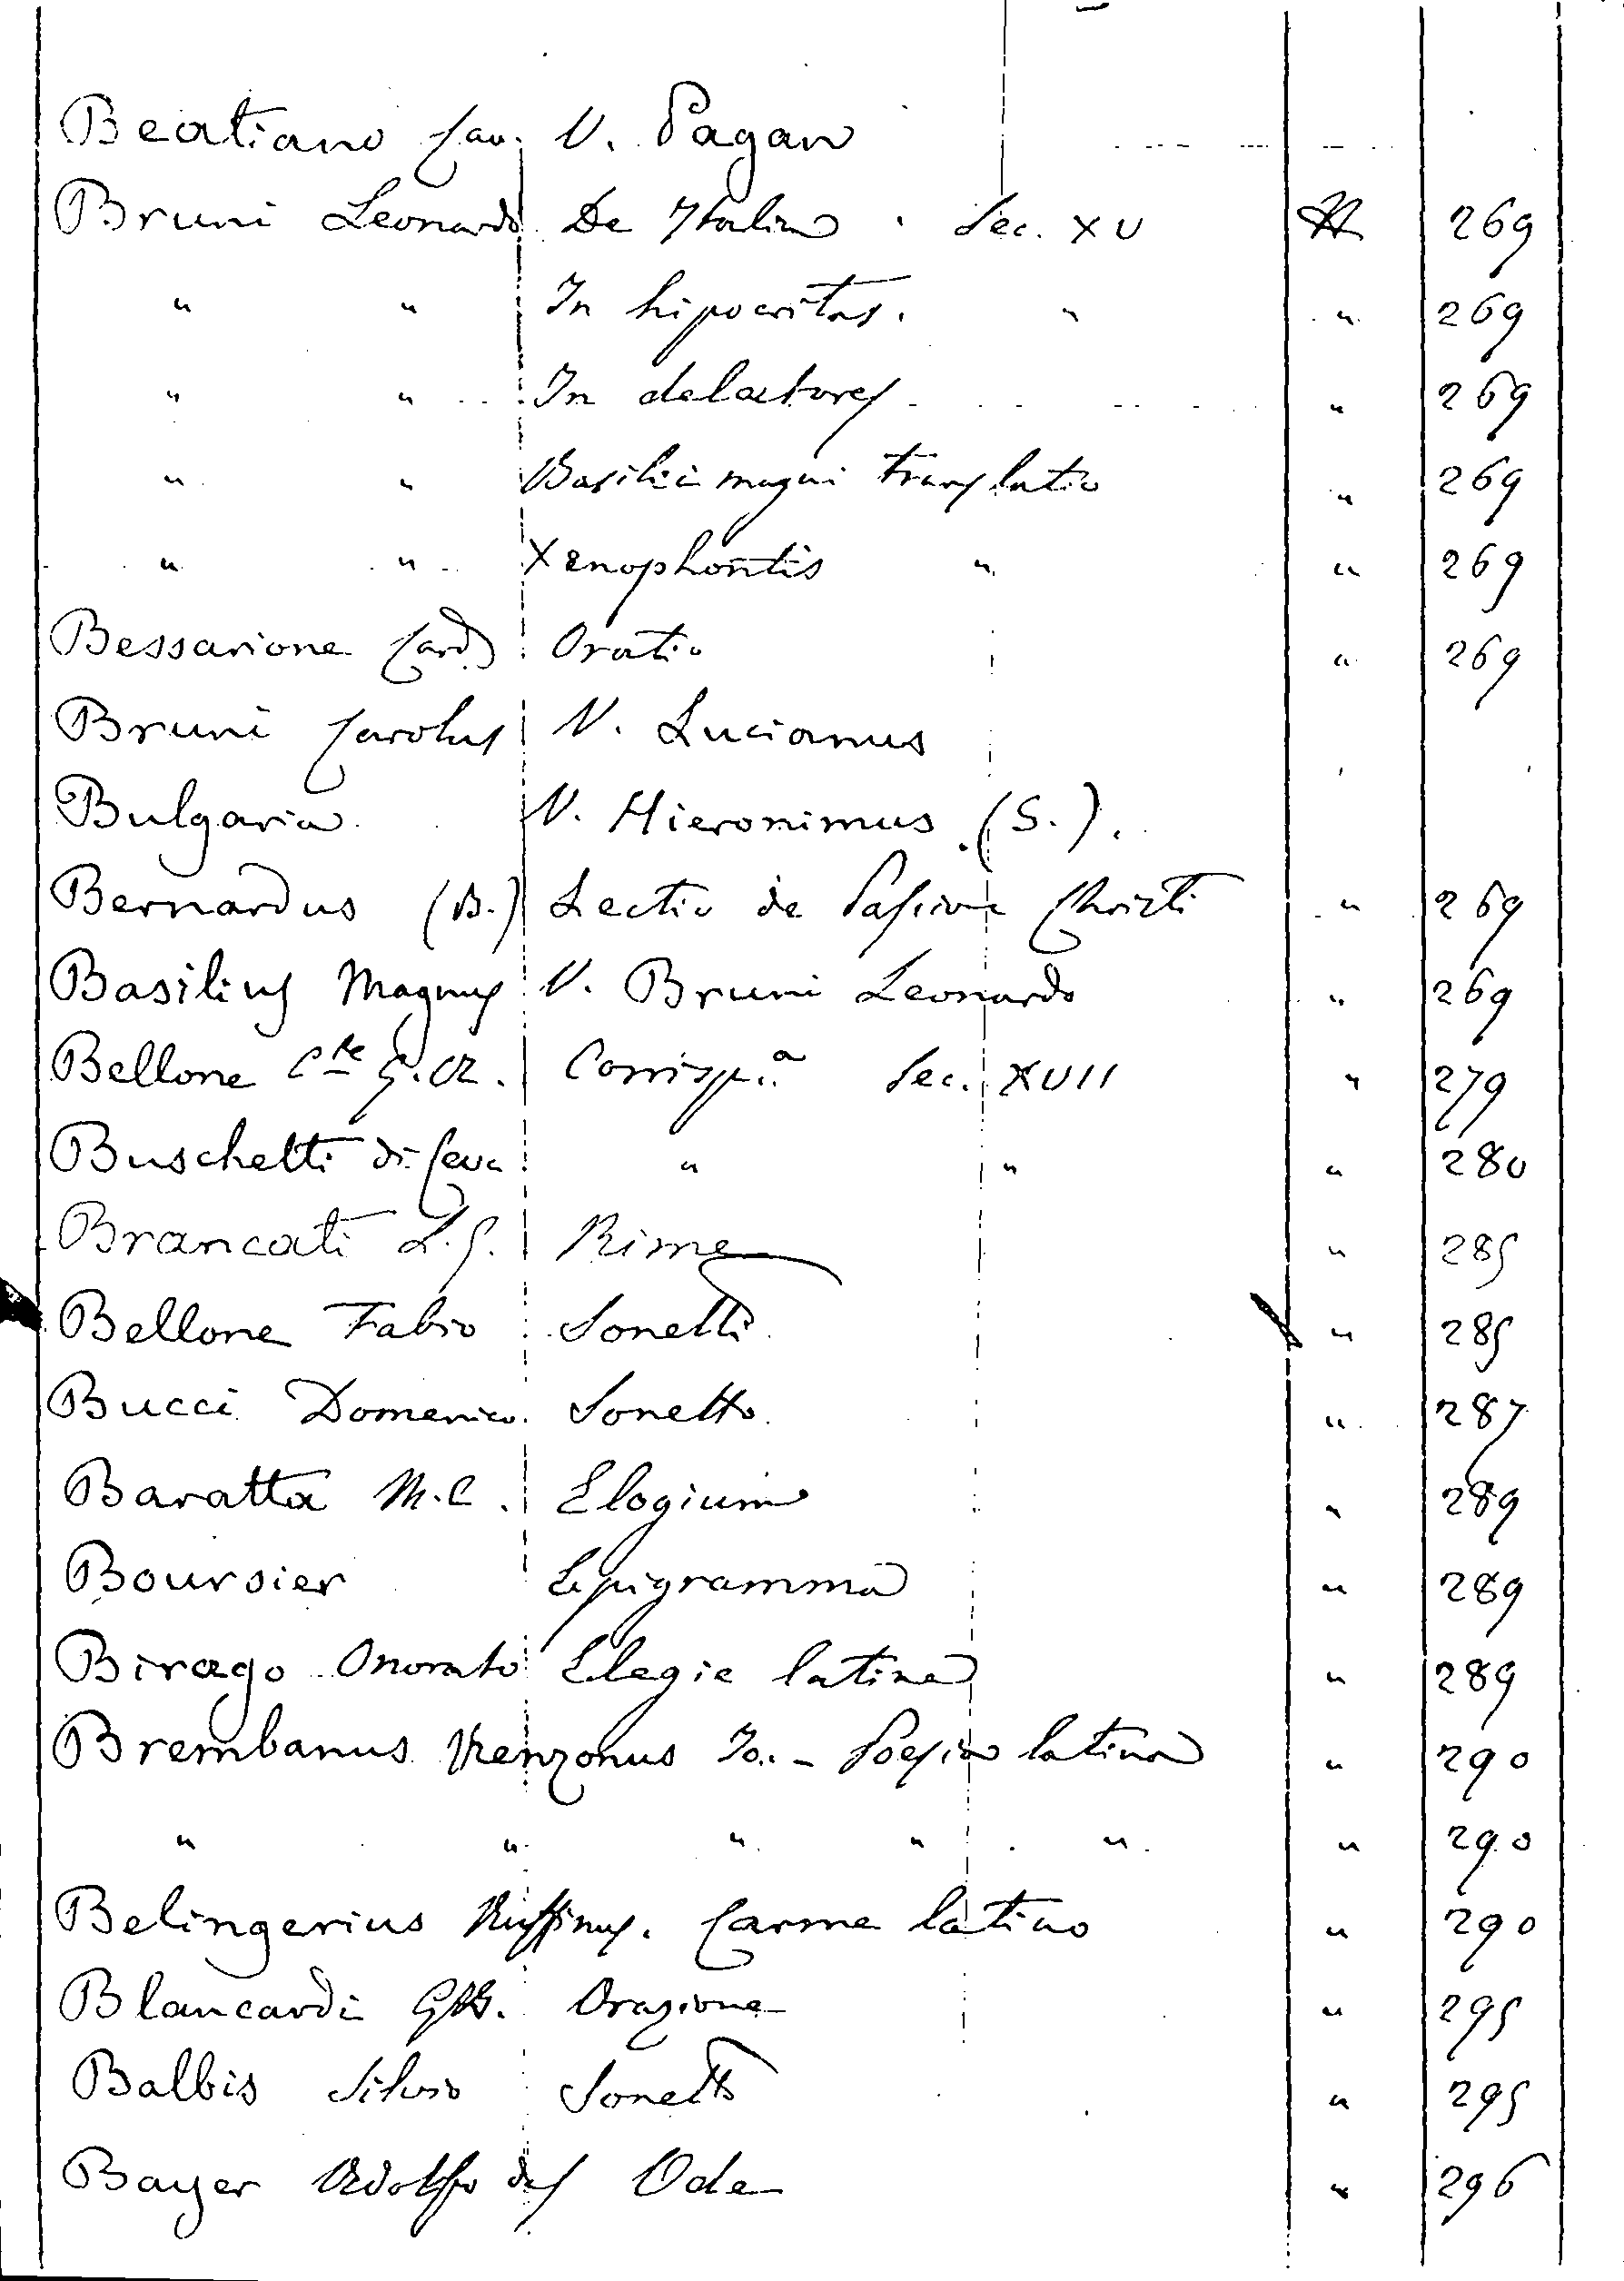 Beatiano Cav. V. Pagan
Bruni Leonardo De Italia . Sec. XV 269
" " In hipocritas . " " 269
" " In delatores " 269
" " Basilii magni translatio " 269
" " Xenophontis " " 269
Bessarione Card. Oratio " 269
Bruni Carolus V. Lucianus
Bulgaria V. Hieronimus (S.).
Bernardus (B.) Lectio de Passione Christi " 269
Basilius Magnus V. Bruni Leonardo " 269
Bellone Cte G. A. Corrispa Sec. XVII " 279
Buschetti di Ceva " " " 280
Brancati L. G. Rime " 285
Bellone Fabio Sonetti " 285
Bucci Domenico Sonetto " 287
Baratta M. C. Elogium " 289
Boursier Epigramma " 289
Birago Onorato Elegie latine " 289
Brembanus Renzonus Jo. - Poesia latina " 290
" " " " " " 290
Belingerius Ruffinus. Carme latino " 290
Blancardi GB. Orazione " 295
Balbis Silvio Sonetto " 295
Bayer Adolfo des Ode " 296